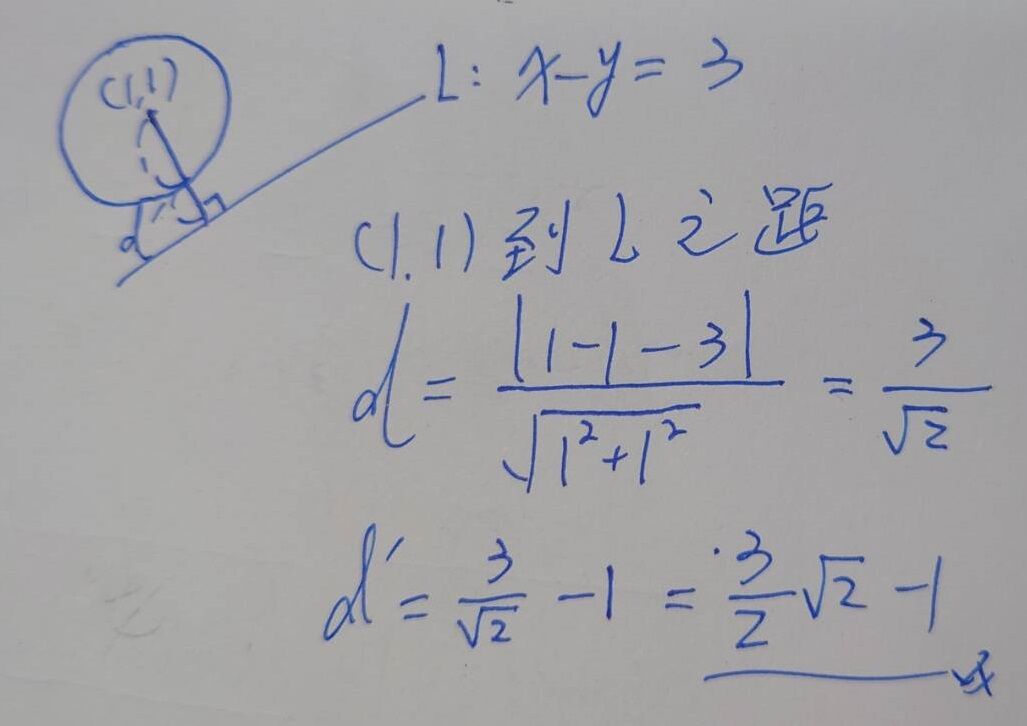 (1,1)
L: x-y=3
d'
(1,1)到L之距
d = |1-1-3| / √(1²+1²) = 3/√2
d' = 3/√2 - 1 = 3/2 √2 - 1